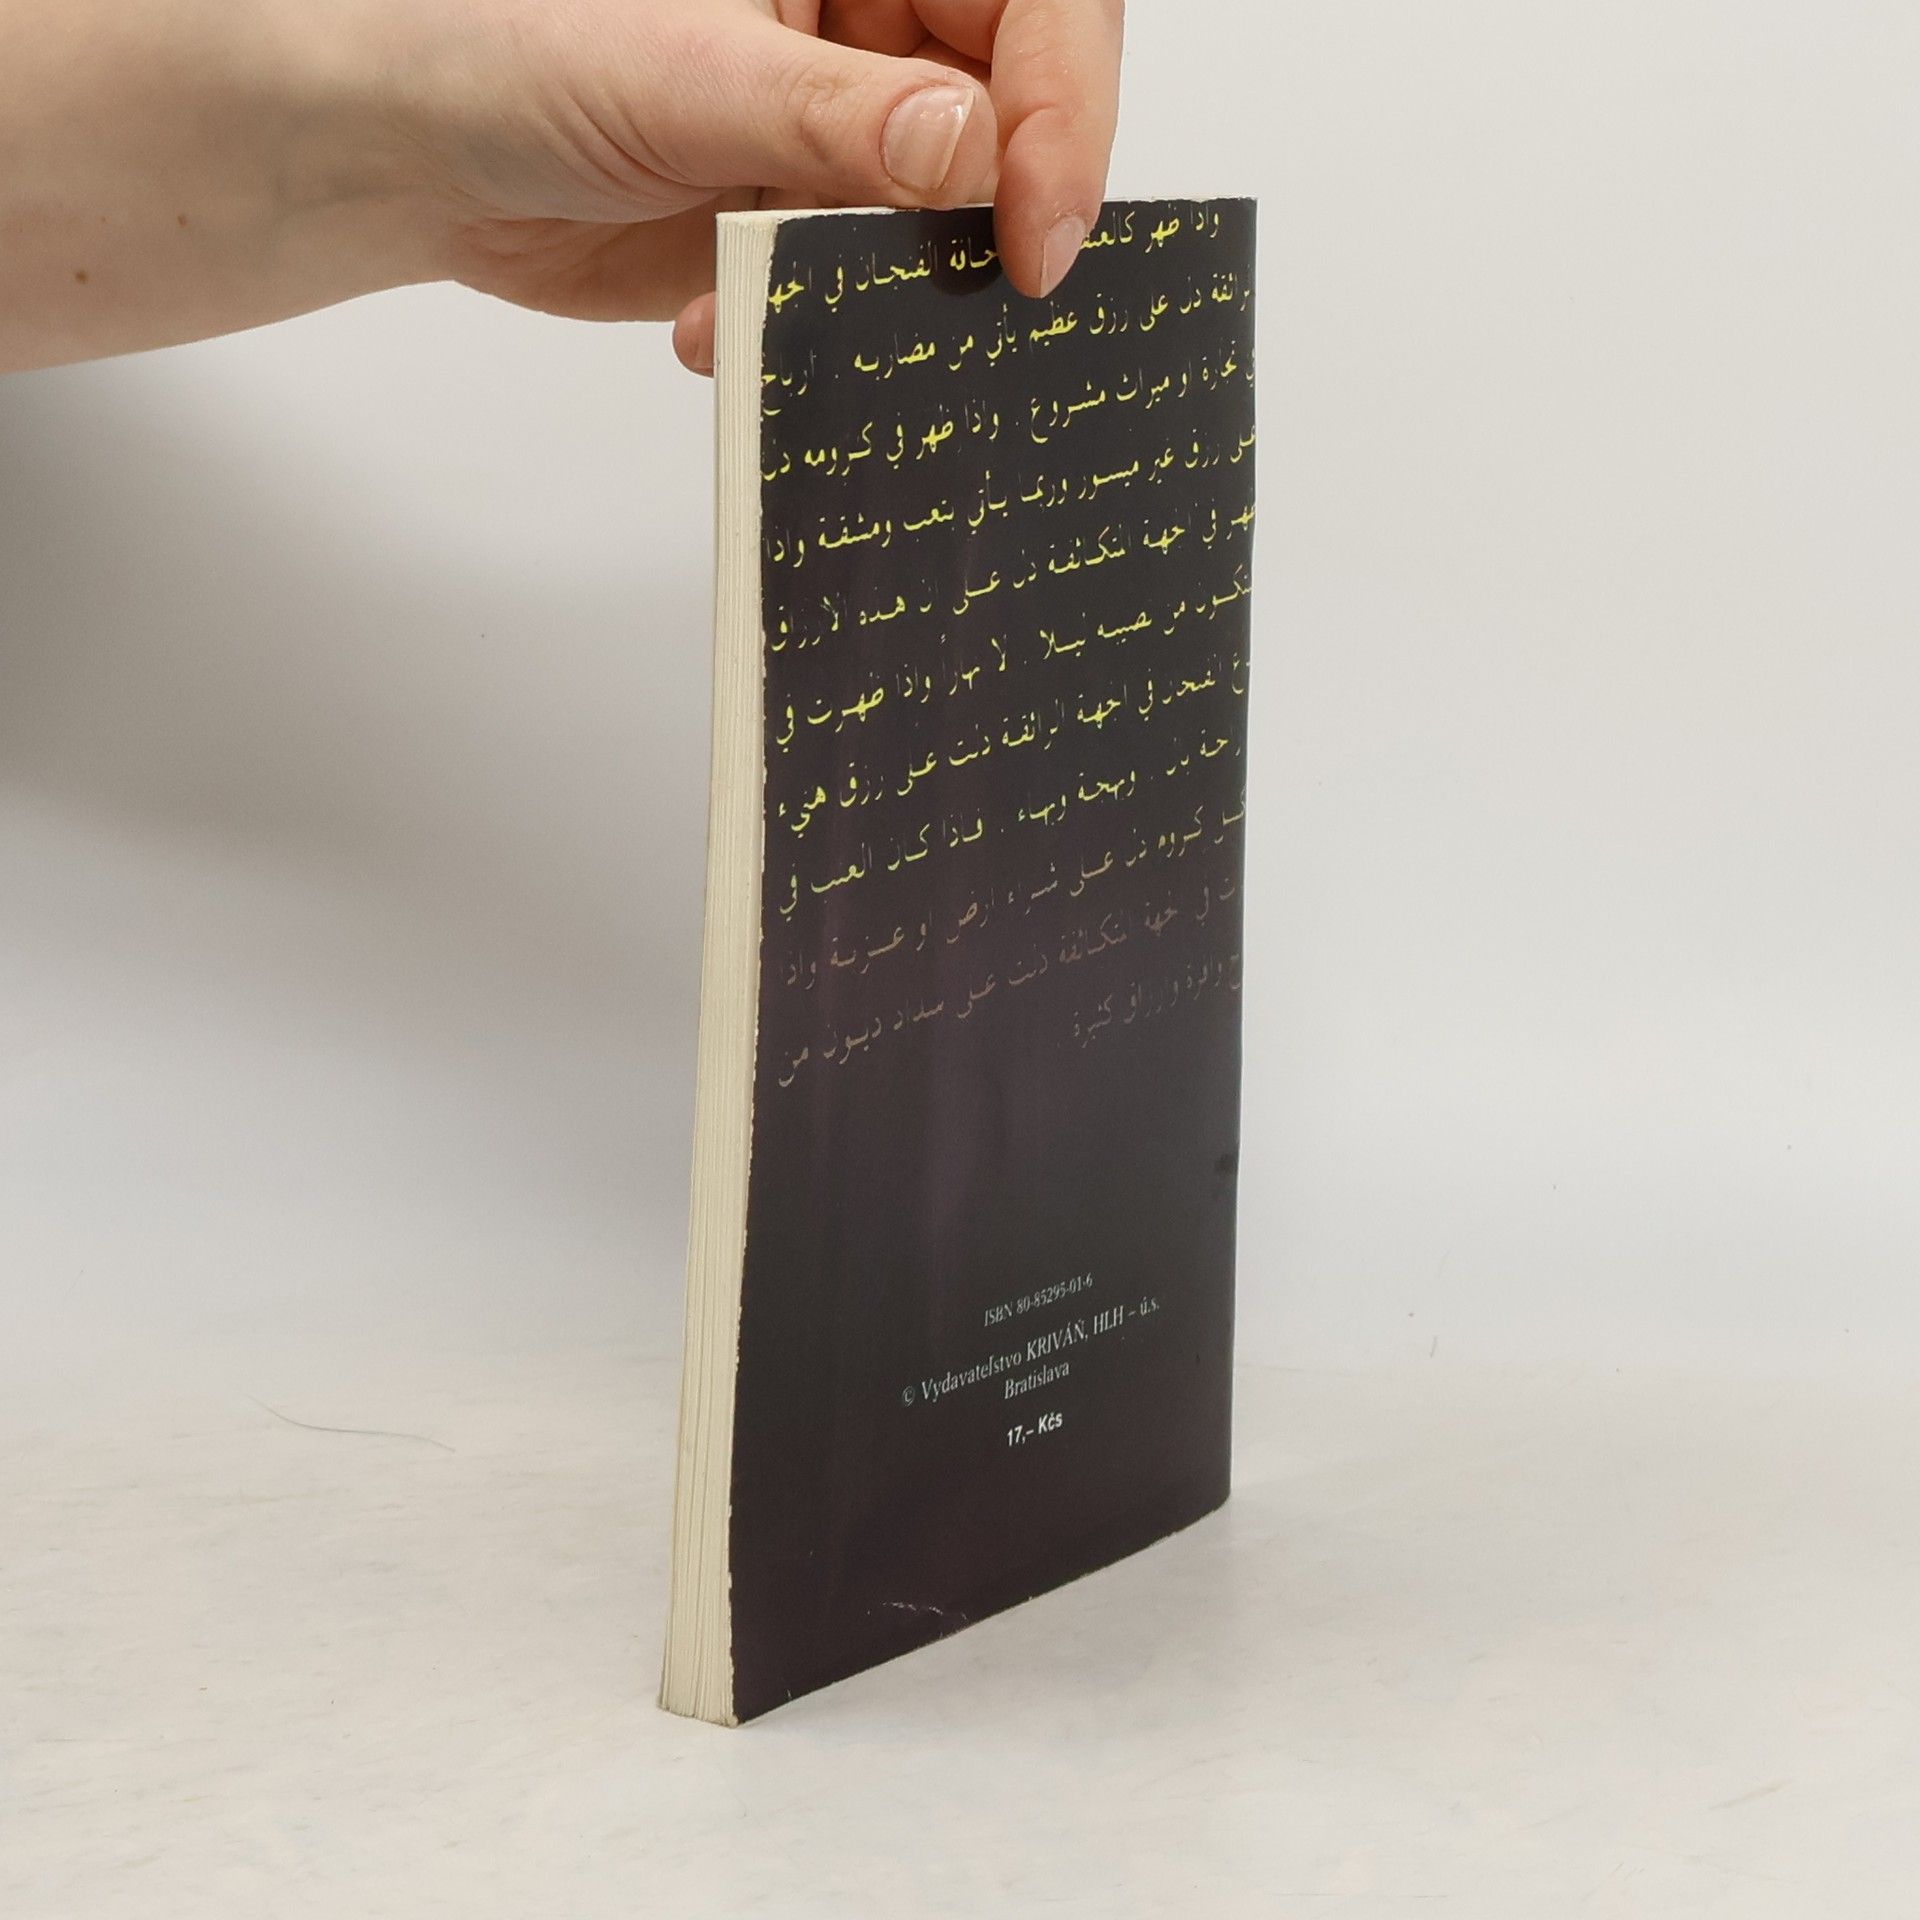 واذا ظهر حافة الفنجان في الجهة
دل على رزق عظيم يأتي من مضاربه . ارباح
تجارة او ميراث مشروع . واذا ظهر في كرومه دل
على رزق غير ميسور وربما يأتي بتعب ومشقة واذا
في الجهة المتكاثفة دل على ان هذه الارزاق
من نصيبه ليلا . لا نهاراً واذا ظهرت في
الفنجان في الجهة الرائقة دلت على رزق هنيء
بال . وبهجة وبهاء . فاذا كان العنب في
كروم دل على شراء ارض او عزبة واذا
في الجهة المتكاثفة دلت على سداد ديون من
وافرة وارزاق كثيرة .
ISBN 80-85295-01-6
© Vydavateľstvo KRIVÁŇ, HLH – ú.s.
Bratislava
17,– Kčs